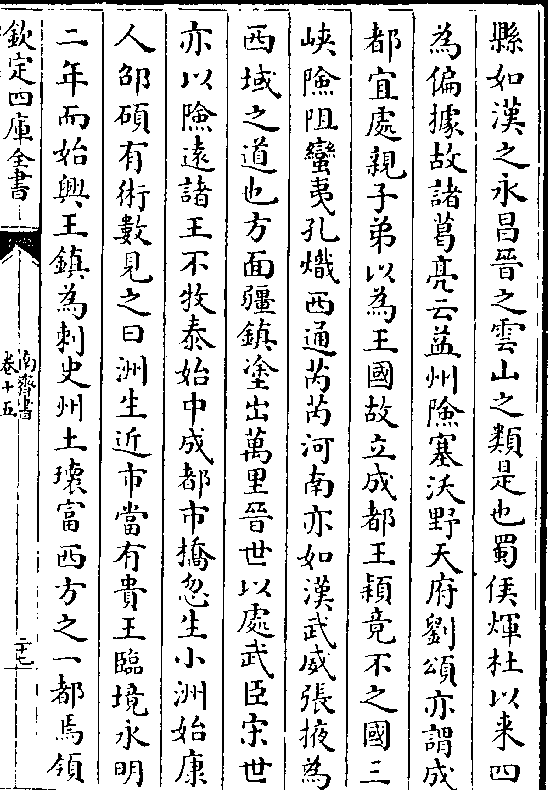 縣如漢之永昌晉之雲山之類是也蜀侯煇杜以来四
為偏據故諸葛亮云益州險塞沃野天府劉頌亦謂成
都宜處親子弟以為王國故立成都王穎竟不之國三
峽險阻蠻夷孔熾西通芮芮河南亦如漢武威張掖為
西域之道也方面疆鎮塗出萬里晉世以處武臣宋世
亦以險遠諸王不牧泰始中成都市橋忽生小洲始康
人邵碩有術數見之曰洲生近市當有貴王臨境永明
二年而始興王鎮為刺史州土瓌富西方之一都焉領
欽定四庫全書
南齊書
卷十五
二十七